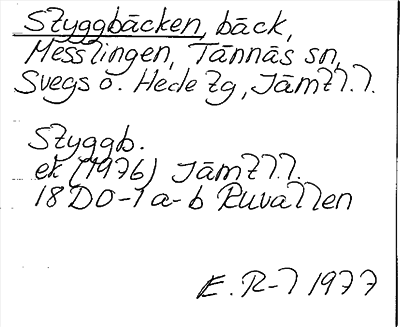 Styggbäcken, bäck,
Messlingen, Tännäs sn,
Svegs o. Hede tg, Jämtl.l.
Styggb.
ek (1976) Jämtl.l.
18D0-1 a-b Ruvallen
E. R-l 1977